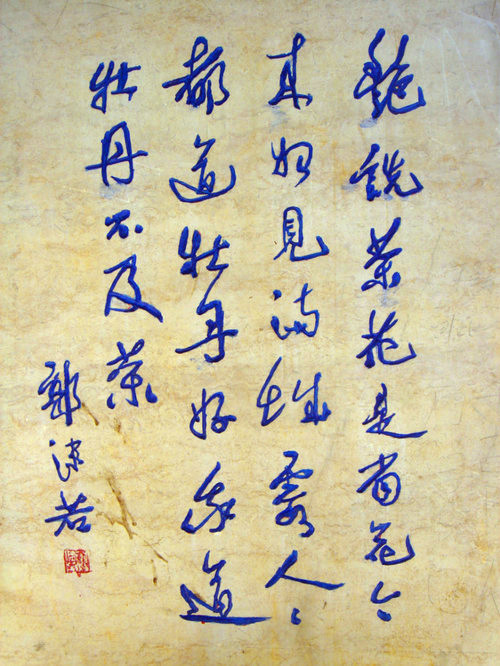 艷說茶花是省花今
来始見满城霞人々
都道牡丹好我道
牡丹不及茶
郭沫若